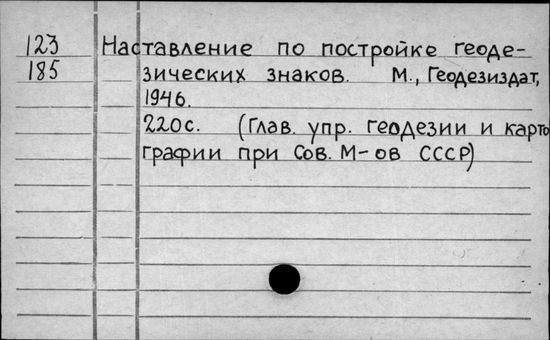 123 Наставление по постройке геоде-
185 зических знаков. М., Геодезиздат,
1946.
220с. (Глав. упр. геодезии и карто
графии при Сов. М-ов СССР)